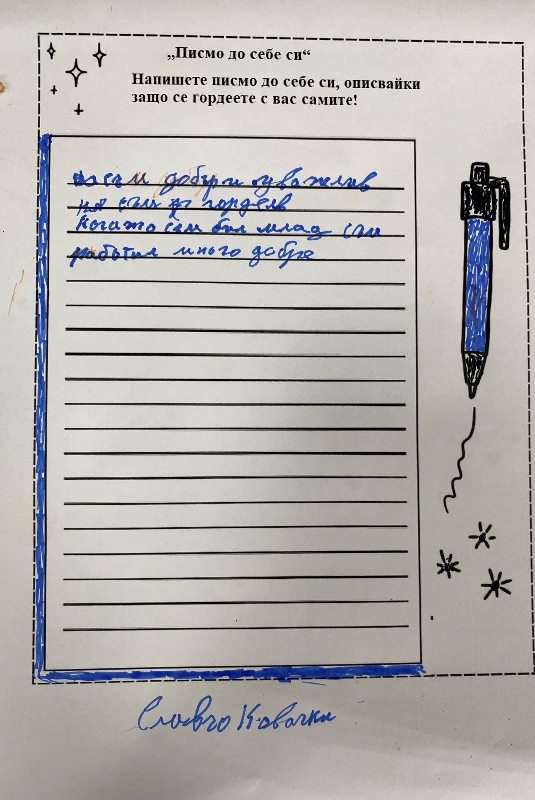 „Писмо до себе си“
Напишете писмо до себе си, описвайки
защо се гордеете с вас самите!
аз съм добър и уважелив
не съм горделв
Когато съм бил млад съм
работил много добре
Славчо Ковачки